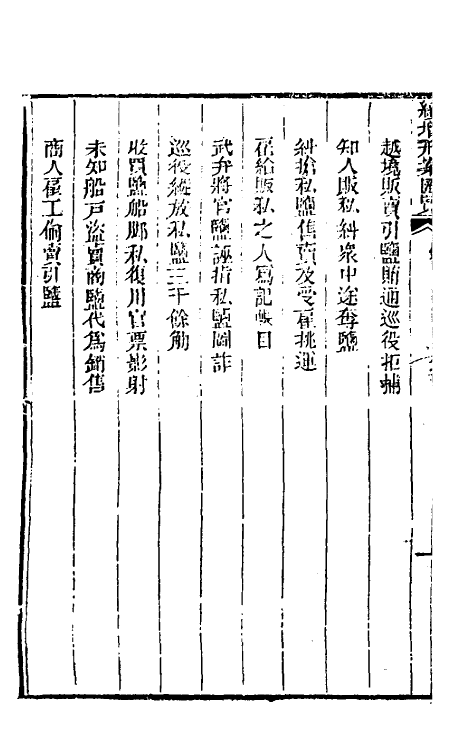 續增刑案匯覽
越境販賣引鹽賄通巡役拒捕
知人販私糾衆中途奪鹽
糾搶私鹽售賣及受雇挑運
在給販私之人寫記帳目
武弁將官鹽誣指私鹽圖詐
巡役縱放私鹽三千餘觔
收買鹽船脚私復用官票影射
未知船戶盜賣商鹽代爲銷售
商人雇工偷賣引鹽